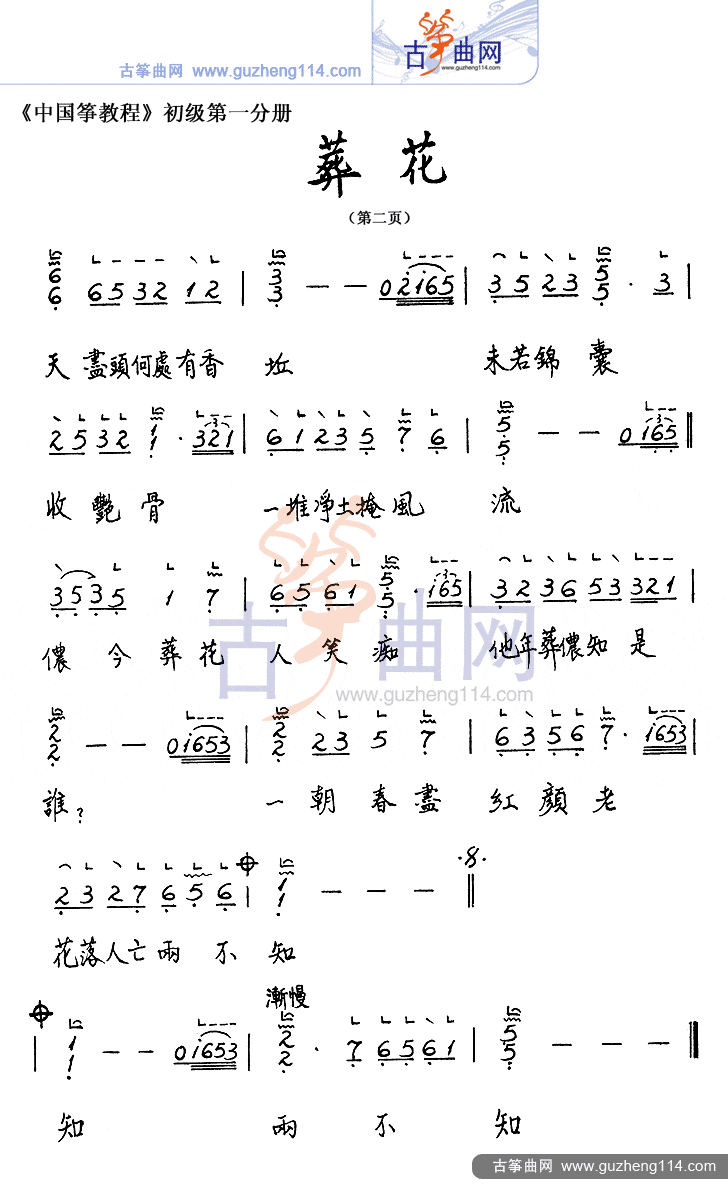 古筝曲网
www.guzheng114.com
古筝曲网 www.guzheng114.com
《中国筝教程》初级第一分册
葬花
(第二页)
6 6 6 5 3 2 1 2 | 3 3 — — 0 2 1 6 5 | 3 5 2 3 5 5 · 3 |
天 盡頭何處有香 坵 未若錦囊
2 5 3 2 1 1 · 3 2 1 | 6 1 2 3 5 7 6 | 5 5 — — 0 1 6 5 ‖
收艷骨 一堆凈土掩風 流
3 5 3 5 1 7 | 6 5 6 1 5 5 · 1 6 5 | 3 2 3 6 5 3 3 2 1 |
儂今葬花 人笑痴 他年葬儂知是
古筝曲网
www.guzheng114.com
2 2 — — 0 1 6 5 3 | 2 2 2 3 5 7 | 6 3 5 6 7 · 1 6 5 3 |
誰? 一朝春盡 紅顏老
2 3 2 7 6 5 6 | 1 1 — — — ‖
花落人亡兩不 知
漸慢
| 1 1 — — 0 1 6 5 3 | 2 2 · 7 6 5 6 1 | 5 5 — — — ‖
知 兩 不 知
古筝曲网 www.guzheng114.com